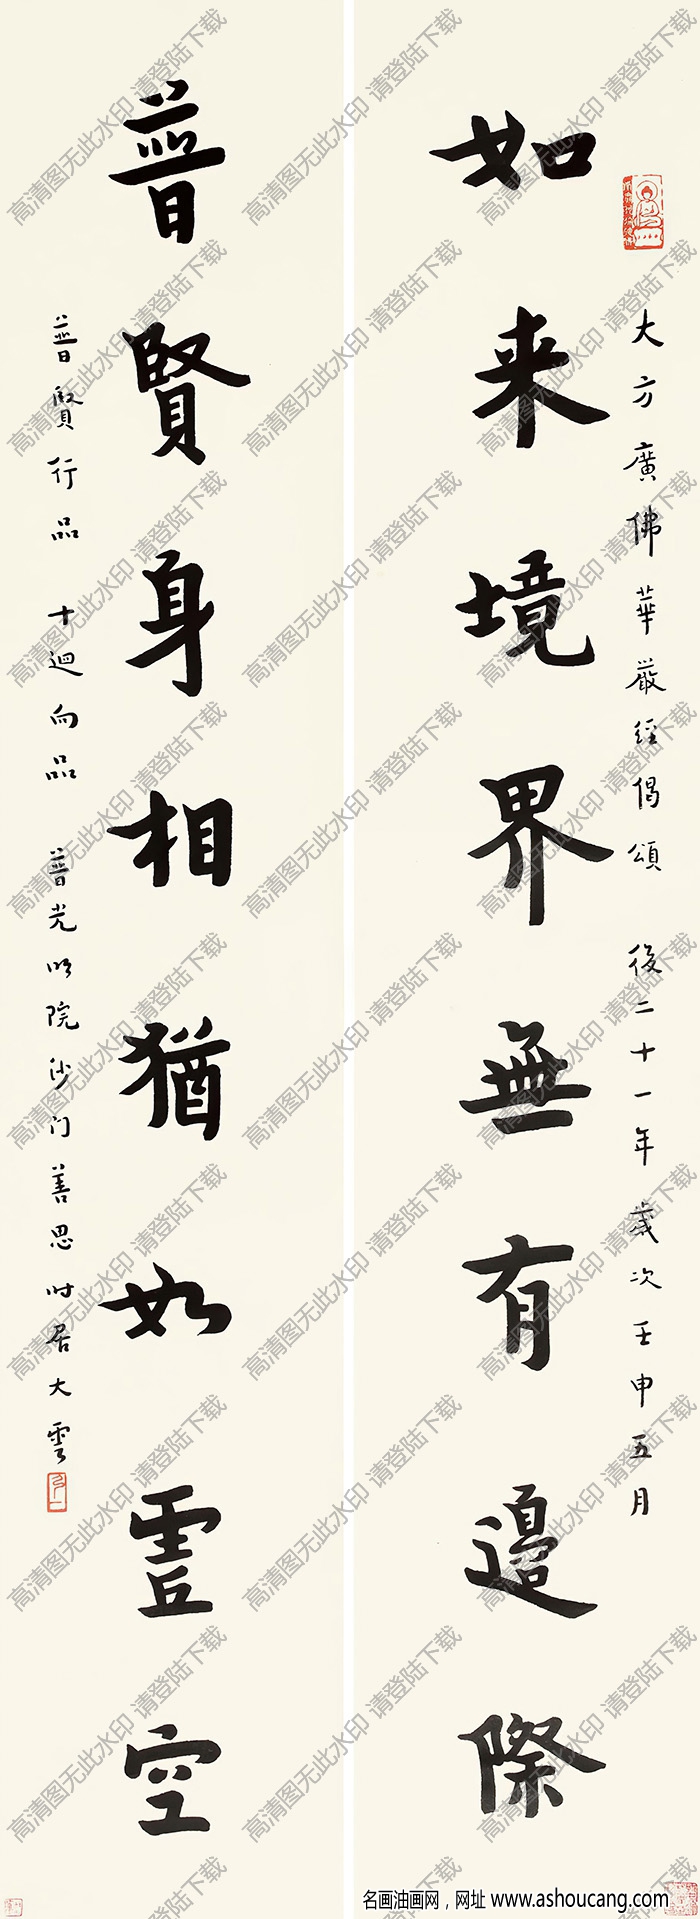 如来境界無有邊際
大方廣佛華嚴經偈頌 後二十一年歲次壬申五月
普賢身相猶如虛空
普賢行品 十迴向品 普光明院沙门善思時居大雲
高清图无此水印 请登陆下载
名画油画网，网址 www.ashoucang.com